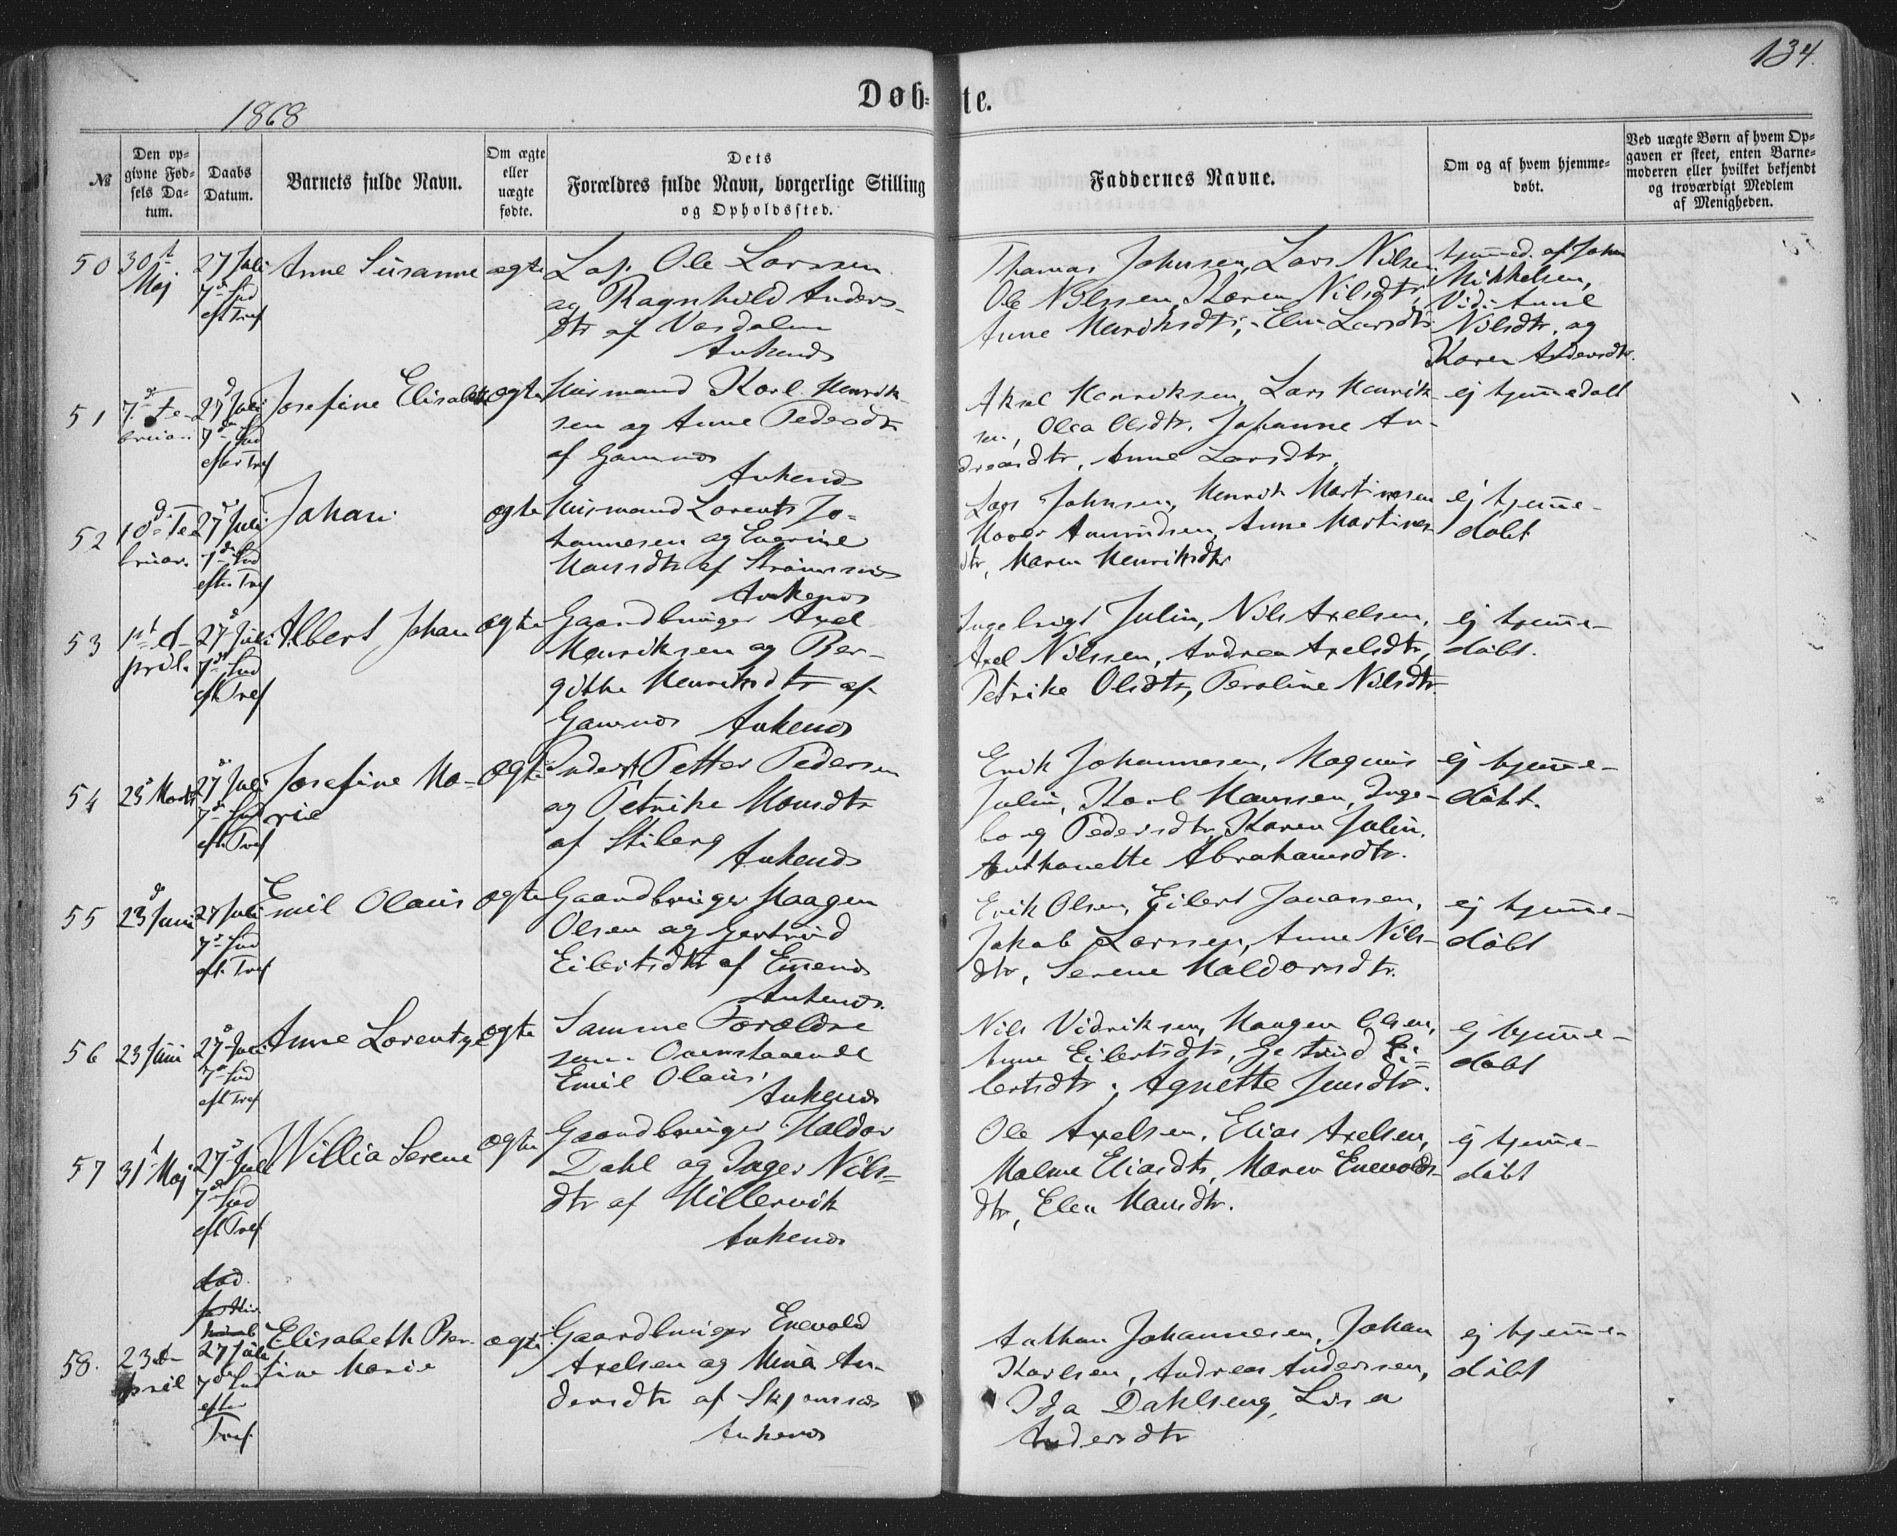 134.
1868
Døb=
te.
№
Den op=
givne Fød=
sels Da=
tum.
Daabs
Datum.
Barnets fulde Navn.
Om ægte
eller
uægte
fødte.
Dets
Forældres fulde Navn, borgerlige Stilling
og Opholdssted.
Faddernes Navne.
Om og af hvem hjemme=
døbt.
Ved uægte Børn af hvem Op=
gaven er skeet, enten Barne=
moderen eller hvilket bekjendt
og troværdigt Medlem
af Menigheden.
50
30t
Maj
27 Juli
7d Sød
eft Tref
Anne Susanne
ægte
Lap. Ole Larssen
og Ragnhild Anders-
dtr af Vasdalen
Ankenæs
Thomas Johnsen, Lars Nilsen
Ole Nilssen, Karen Nilsdtr,
Anne Henriksdtr, Elen Larsdtr
hjemmed. af Johan
Mikkelsen,
Vid: Anne
Nilsdtr. og
Karen Andersdtr.
51
7de Fe-
bruar.
27d Juli
7d Sød
efter Tref
Josefine Elisabeth
ægte
Husmand Karl Henrik-
sen og Anne Pedersdtr
af Gamnes
Ankenæs
Aksel Henriksen, Lars Henrik-
sen, Olea Olsdtr, Johanne An-
dreasdtr, Anne Larsdtr.
ej hjemmedøbt
52
10de Fe-
bruar.
27d Juli
7d Sød
efter Tref
Johan
ægte
Husmand Lorents Jo-
hannesen og Everine
Hansdtr af Strømsnes
Ankenæs
Lars Johnsen, Henrik Martinesen
Amundsen, Anne Martines-
dtr, Maren Henriksdtr
ej hjemme-
døbt
53
1st A-
pril.
27d Juli
7d Sød
eft Tref
Albert Johan
ægte
Gaardbruger Axel
Henriksen og Ber-
gitte Henriksdtr af
Gamnes Ankenæs
Ingebrigt Julin, Nils Axelsen,
Axel Nilssen, Andrea Axelsdtr,
Petrike Olsdtr, Peroline Nilsdtr
ej hjemme-
døbt.
54
25d Marts
27d Juli
7d Sød
eft. Tref
Josefine Ma-
rie
ægte
Inderst Petter Pedersen
og Petrike Monsdtr
af Stiberg
Ankenæs
Erik Johannesen, Magnus
Julin, Karl Hanssen, Inge-
borg Pedersdtr, Karen Julin.
Anthonette Abrahamsdtr.
ej hjemme-
døbt.
55
23d Juni
27 Juli
7d Sød
eft. Tref
Emil Olaus
ægte
Gaardbruger Haagen
Olsen og Gertrud
Eilertsdtr af Emenes
Ankenæs.
Erik Olsen, Eilert Jonassen,
Jakob Larssen, Anne Nils-
dtr, Serene Haldorsdtr.
ej hjemme-
døbt
56
23 Juni
27d Juli
7d Sød
eft Tref
Anne Lorentze
ægte
Samme Forældre
som Ovenstaaende
Emil Olaus,
Ankenæs
Nils Vidriksen, Haagen Olsen,
Anne Eilertsdtr, Gertrud Ei-
lertsdtr, Agnette Jensdtr.
ej hjemme-
døbt
57
31t Maj
27d Juli
7d Sød
eft Tref
Willia Serene
ægte
Gaardbruger Haldor
Dahl og Inger Nils-
dtr af Hillervik
Ankenæs
Ole Axelsen, Elias Axelsen,
Malene Eliasdtr, Maren Enevolds-
dtr, Elen Hansdtr.
ej hjemme-
døbt
58.
23de A-
pril
27 Juli
7d Sød
efter
Tref.
Elisabeth Ber-
tine Marie
ægte
Gaardbruger Enevold
Axelsen og Mina An-
dersdtr af Skjomnes
Ankenæs
Anthon Johannesen, Johan
Karlsen, Andreas Anderssen,
Ida Dahlseng, Lisa
Andersdtr
ej hjemme-
døbt